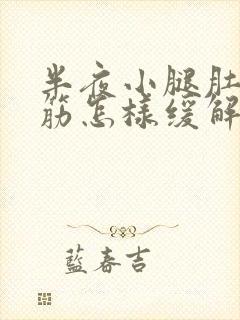 半夜小腿肚
筋怎樣緩解
藍春吉